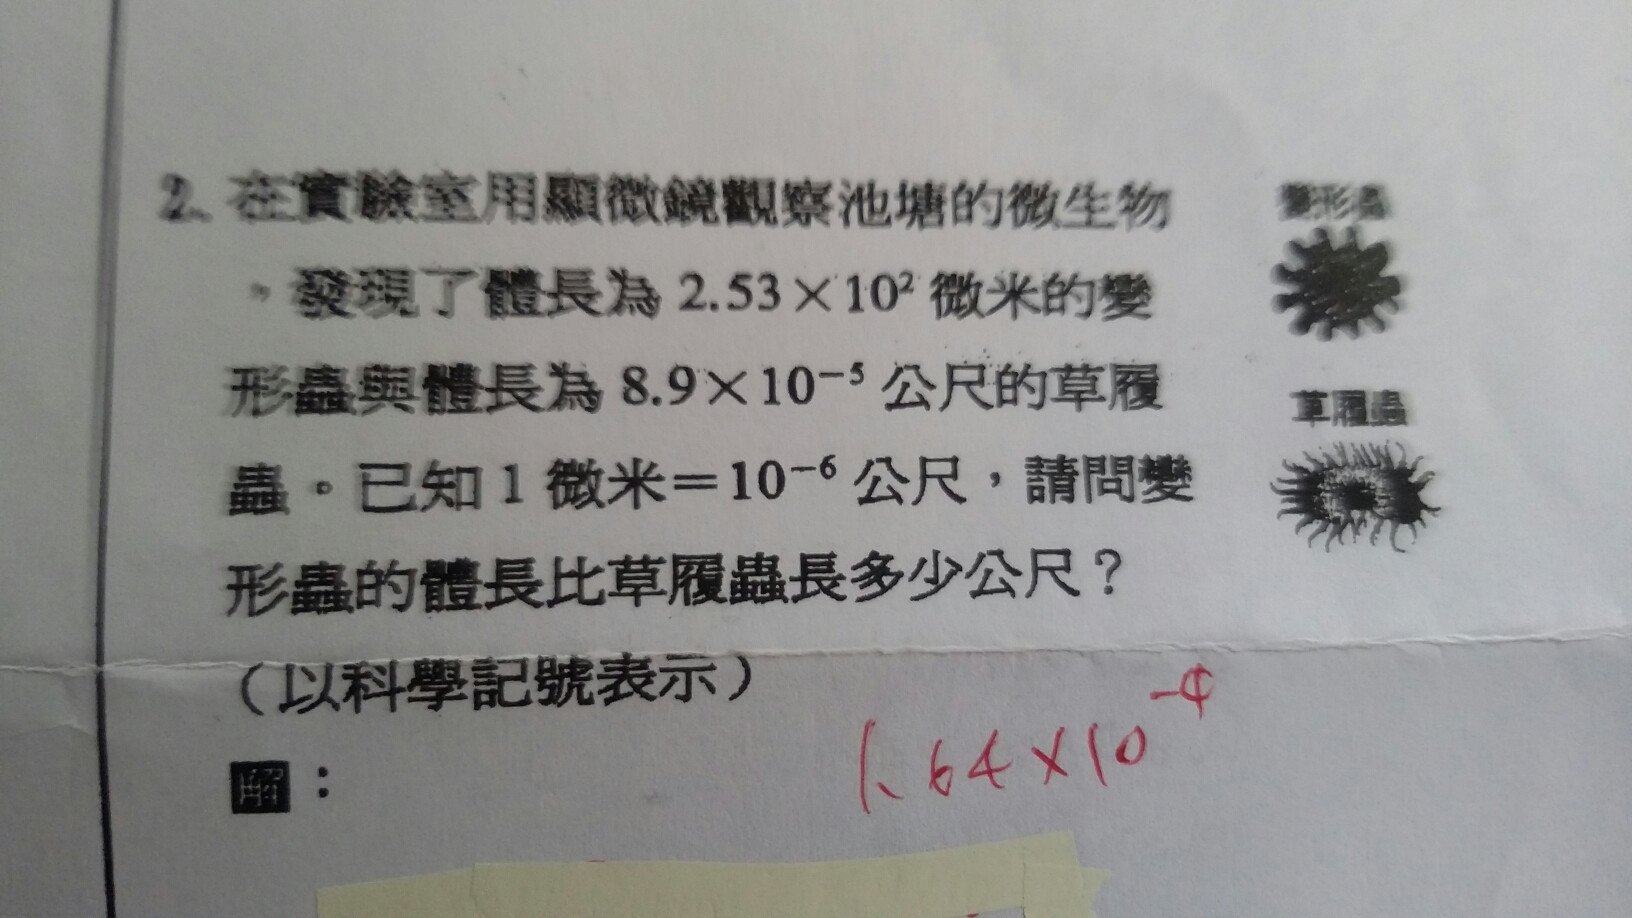 2. 在實驗室用顯微鏡觀察池塘的微生物
，發現了體長為 2.53×10² 微米的變
形蟲與體長為 8.9×10⁻⁵ 公尺的草履
蟲。已知 1 微米＝10⁻⁶ 公尺，請問變
形蟲的體長比草履蟲長多少公尺？
（以科學記號表示）
解：
1.64×10⁻⁴
變形蟲
草履蟲